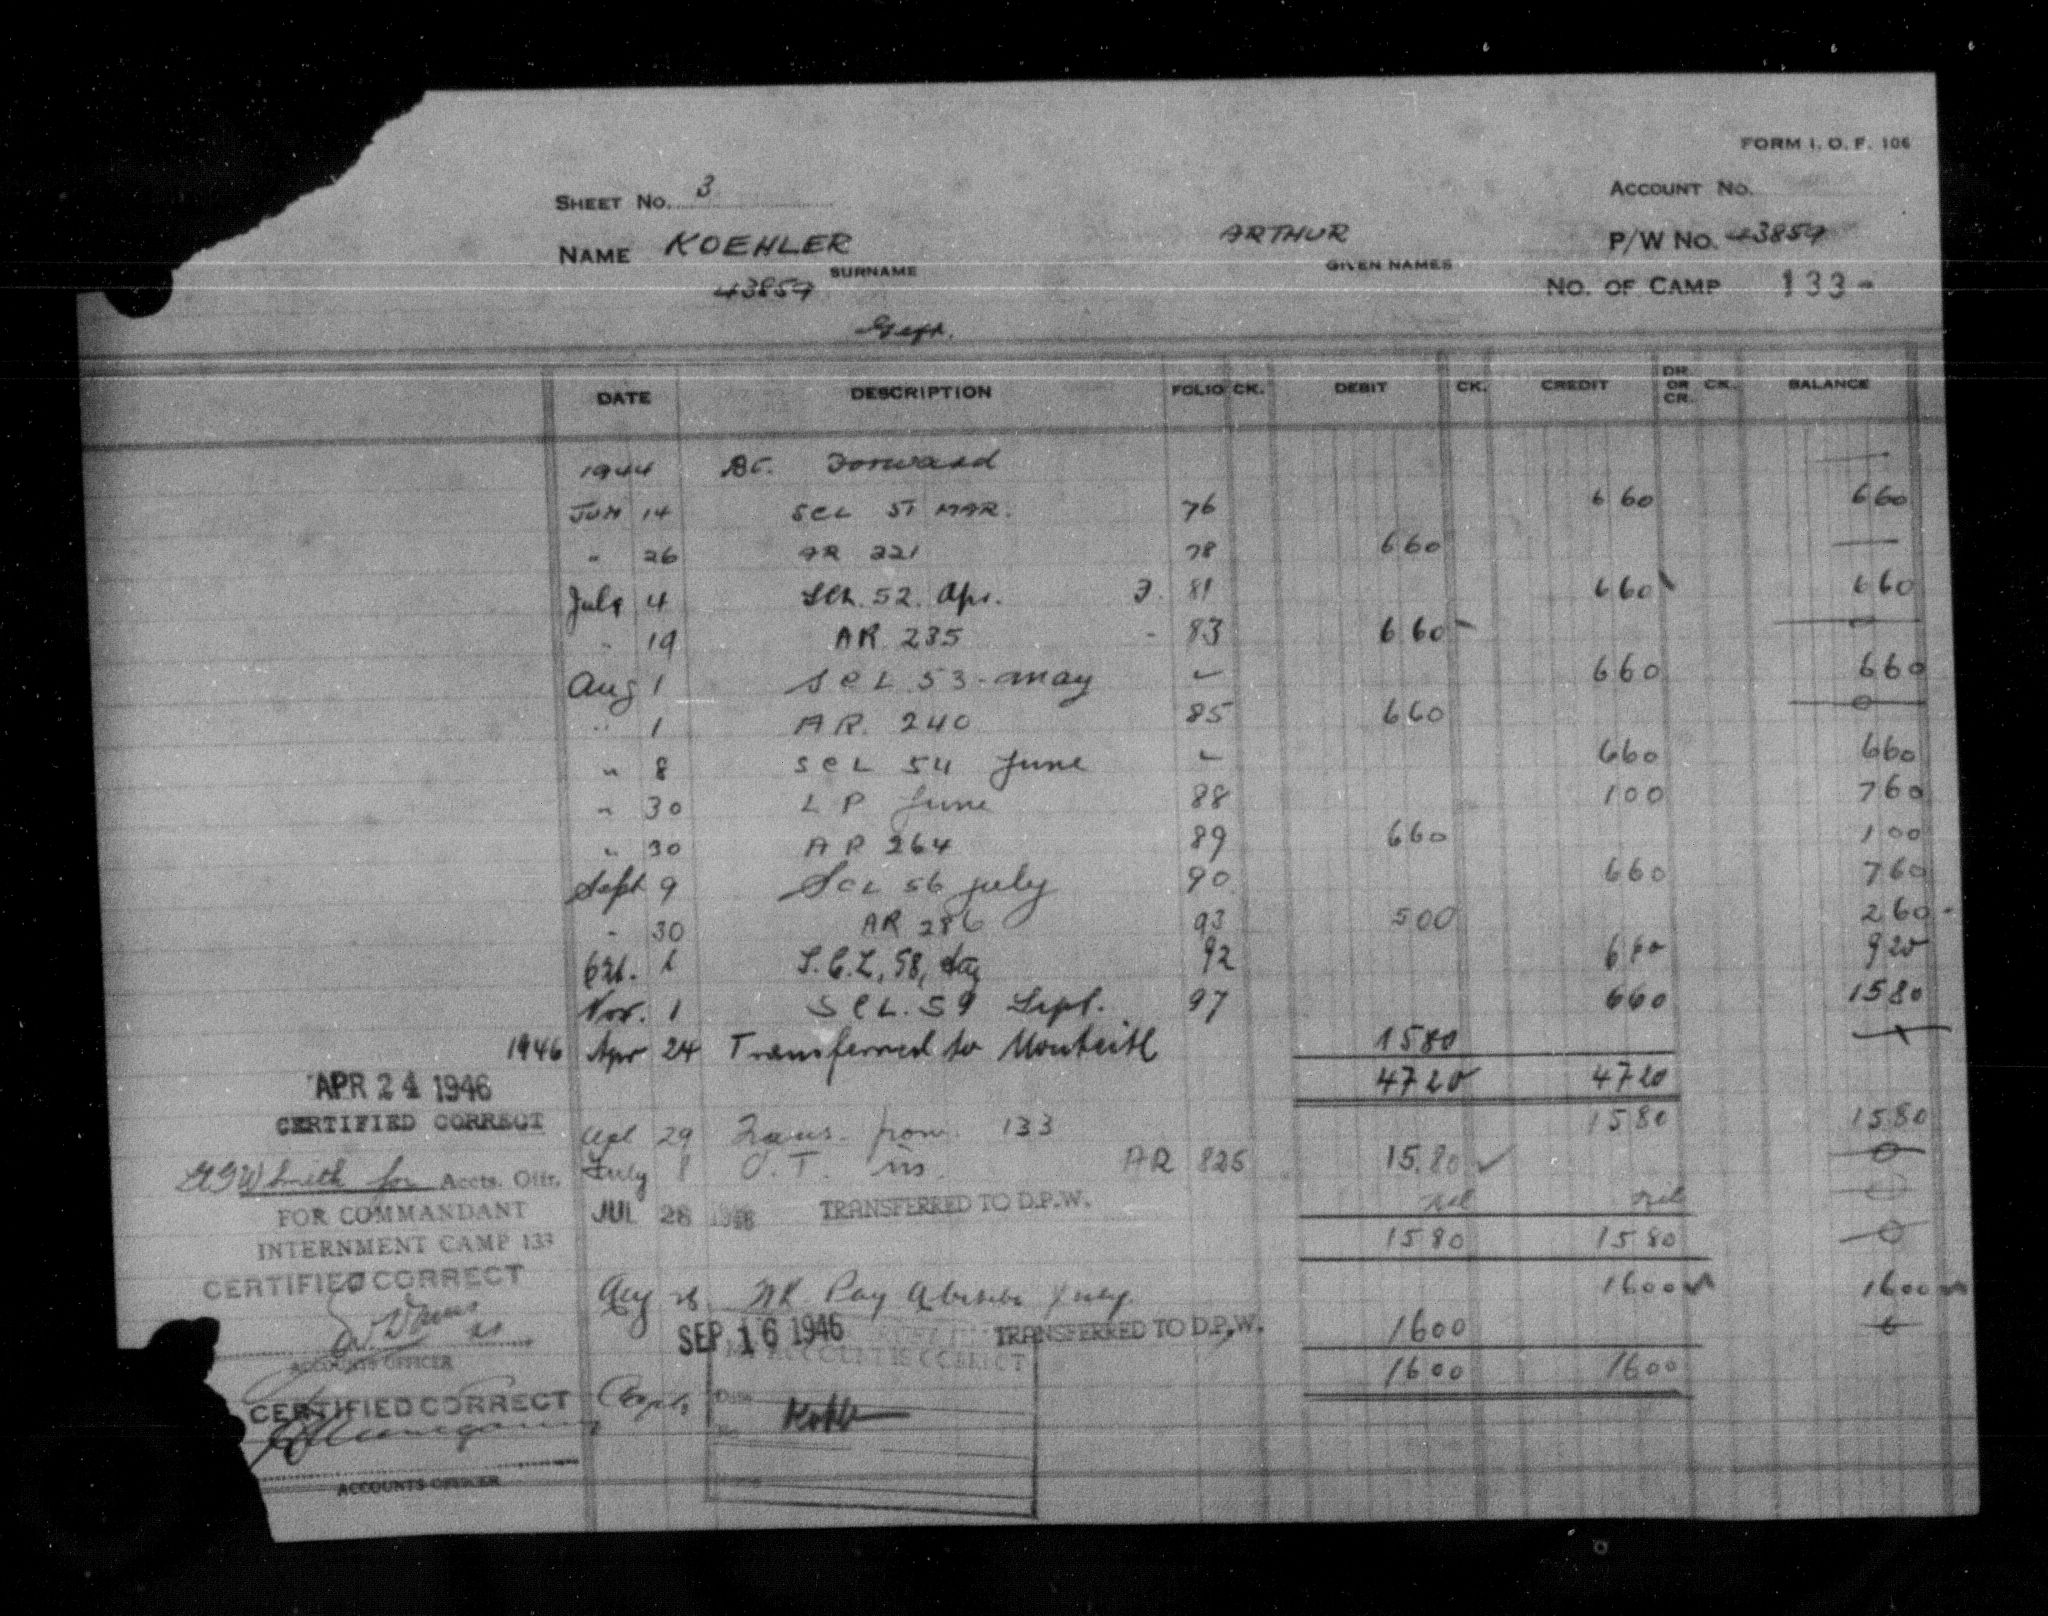 FORM I. O. F. 106
SHEET NO. 3 ACCOUNT NO.
NAME KOEHLER ARTHUR P/W NO. 43859
SURNAME GIVEN NAMES
43859 NO. OF CAMP 133-
DATE DESCRIPTION FOLIO CK. DEBIT CK. CREDIT DR. OR CR. CK. BALANCE
1944 Forward —
JUN 14 SCL 51 MAR. 76 660 660
" 26 AR 221 78 660 —
July 4 52. Apr. 81 660 660
" 19 AR. 235 - 83 660 0
Aug 1 SCL 53 - May ✓ 660 660
" 1 AR. 240 85 660 0
" 8 SCL 54 June ✓ 660 660
" 30 L P June 88 100 760
" 30 AR 264 89 660 100
Sept 9 SCL 56 July 90 660 760
" 30 AR 286 93 500 260 -
Oct. S.C.L. 58, 92 660 920
Nov. 1 SCL. 59 Sept. 97 660 1580
1946 Apr 24 Transferred to Monteith 1580
APR 24 1946 4720 4720
CERTIFIED CORRECT
Apl 29 Trans. from 133 1580 1580
July 8 AR 825 15.80 ✓ 0
Smith for Accts. Offr.
JUL 28 1946 TRANSFERRED TO D.P.W. nil nil 0
FOR COMMANDANT
INTERNMENT CAMP 133 1580 1580 0
CERTIFIED CORRECT
Aug Pay 1600 1600
SEP 16 1946 TRANSFERRED TO D.P.W. 1600
ACCOUNTS OFFICER ACCOUNT IS CORRECT 1600 1600
CERTIFIED CORRECT Date
ACCOUNTS OFFICER